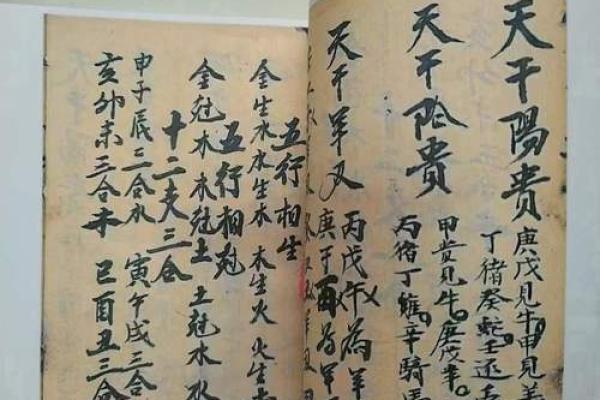 天干陽貴
庚戊見牛甲見羊
丁猪癸蛇壬逐
天干陰貴
甲貴見牛庚戊羊
丙猪丁雞辛騎馬
天干羊刄
丙戊午為羊
庚干酉為羊
五行相生
金生水 水生木 木生火 火生
五行相尅
金尅木 木尅土 土尅水 水
十二支三合
申子辰三合水 寅午戌三合
亥卯未三合木 巳酉丑三合